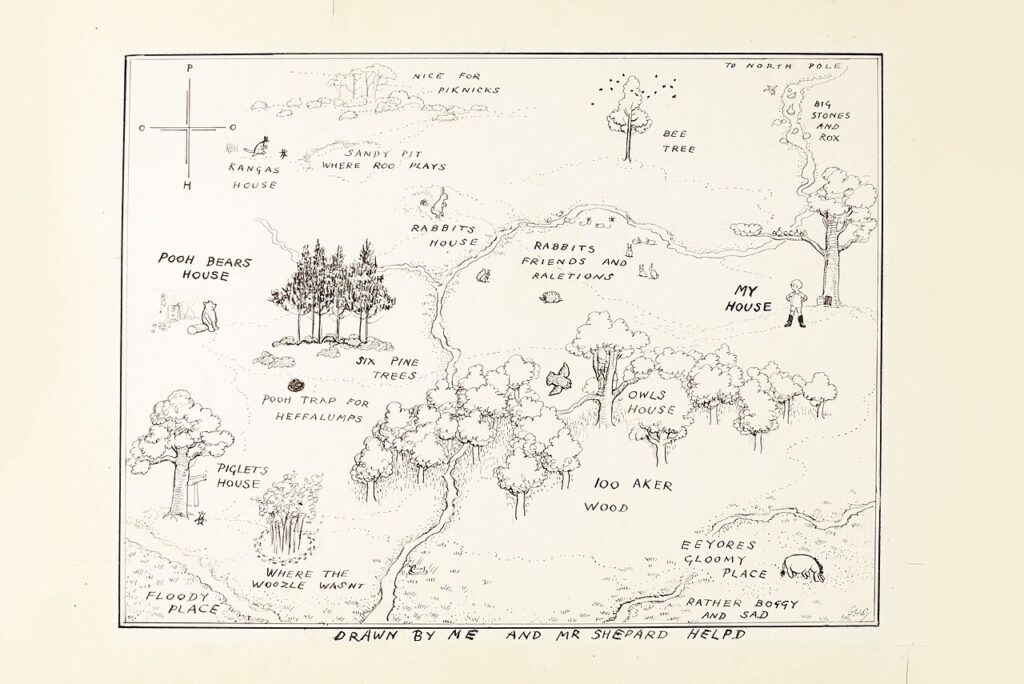 P
O
O
H
NICE FOR
PIKNICKS
TO NORTH POLE
BIG
STONES
AND
ROX
BEE
TREE
KANGAS
HOUSE
SANDY PIT
WHERE ROO PLAYS
RABBITS
HOUSE
RABBITS
FRIENDS AND
RALETIONS
POOH BEARS
HOUSE
MY
HOUSE
SIX PINE
TREES
POOH TRAP FOR
HEFFALUMPS
OWLS
HOUSE
PIGLETS
HOUSE
100 AKER
WOOD
EEYORES
GLOOMY
PLACE
WHERE THE
WOOZLE WASNT
FLOODY
PLACE
RATHER BOGGY
AND SAD
DRAWN BY ME AND MR SHEPARD HELPD